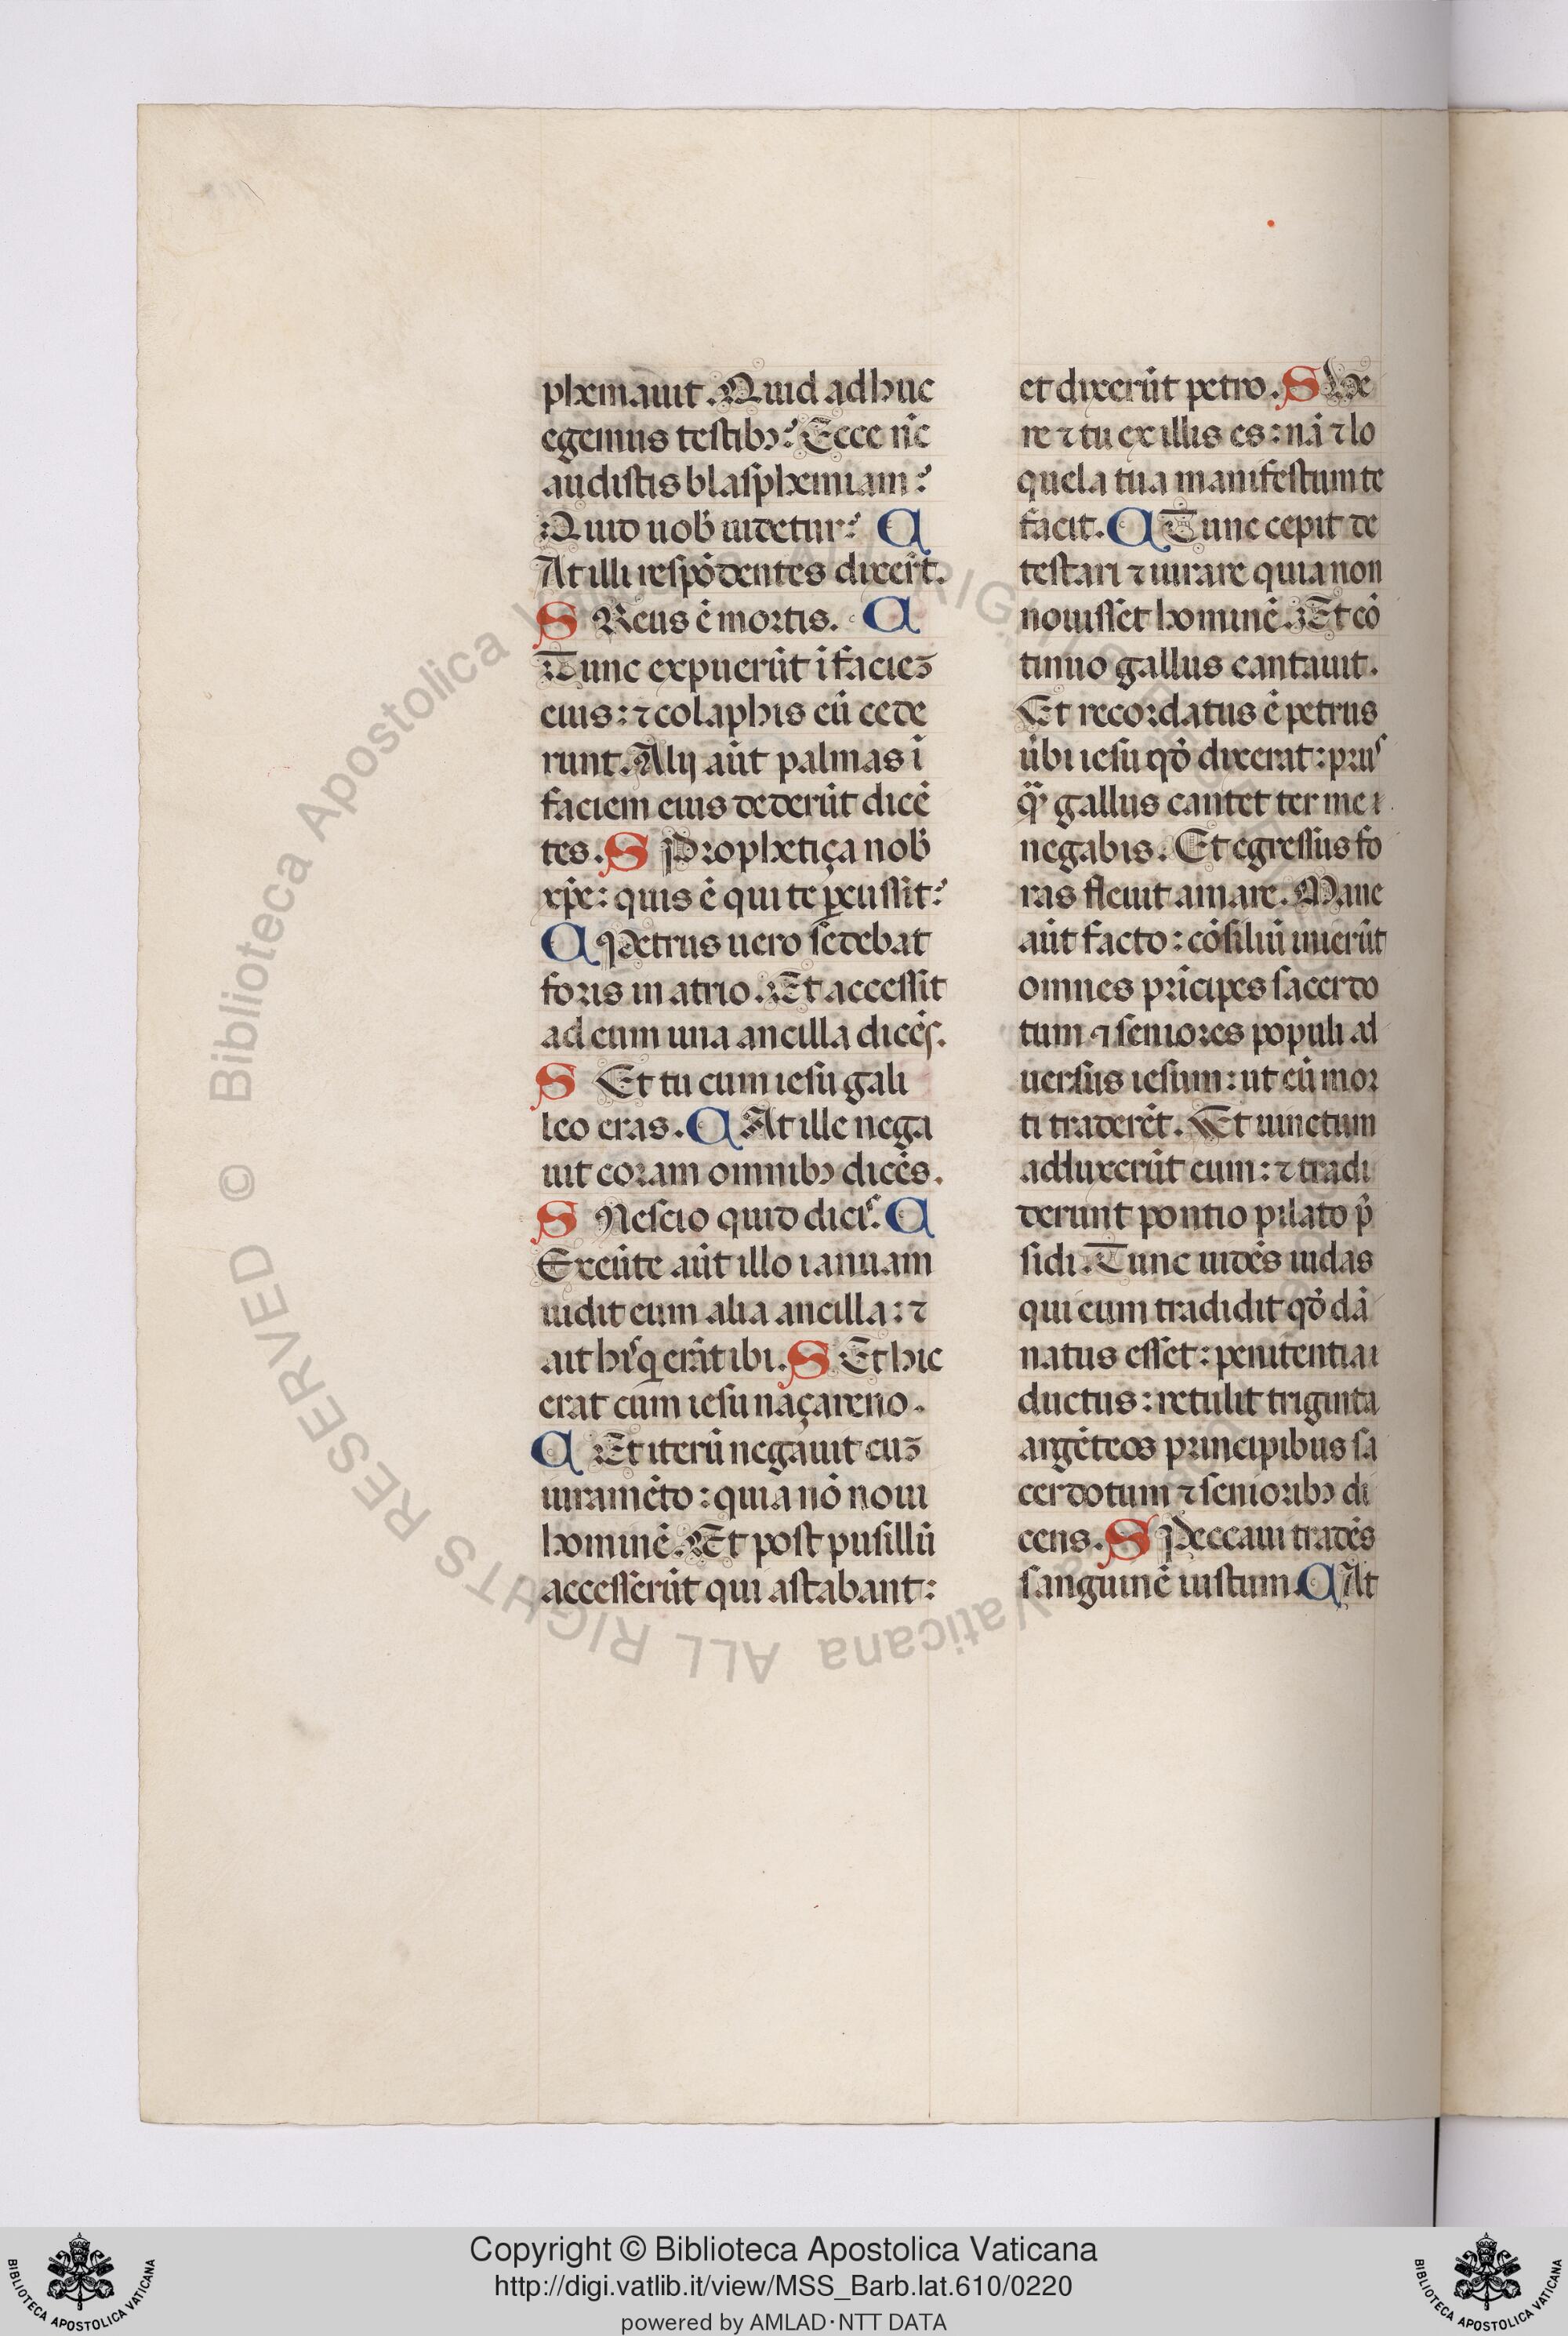 phemauit. Quid adhuc
egemus testibꝫ? Ecce nc̄
audistis blasphemiam?
Quid uob̄ uidetur? C
At illi respōdentes dixer̄t.
S Reus ē mortis. C
Tunc expuerūt ī facieꝫ
eius: ⁊ colaphis eū cede
runt. Alij aūt palmas ī
faciem eius dederūt dicē
tes. S Prophetiça nob̄
xp̄e: quis ē qui te ꝑcussit?
C Petrus uero sedebat
foris in atrio. Et accessit
ad eum una ancilla dicēs.
S Et tu cum iesu gali
leo eras. C At ille nega
uit coram omnibꝫ dicēs.
S Nescio quid dicis. C
Exeūte aūt illo ianuam
uidit eum alia ancilla: ⁊
ait his q erāt ibi. S Et hic
erat cum iesu naçareno.
C Et iterū negauit cuꝫ
iuramēto: quia nō noui
hominē. Et post pusillū
accesserūt qui astabant:
et dixerūt petro. S Ve
re ⁊ tu ex illis es: nā ⁊ lo
quela tua manifestum te
facit. C Tunc cepit de
testari ⁊ iurare quia non
nouisset hominē. Et cō
tinuo gallus cantauit.
Et recordatus ē petrus
ūbi iesu qđ dixerat: prius
qꝫ gallus cantet ter me
negabis. Et egressus fo
ras fleuit amare. Mane
aūt facto: cōsiliū inierūt
omnes prīcipes sacerdo
tum ⁊ seniores populi ad
uersus iesum: ut eū mor
ti traderēt. Et uinctum
adduxerūt eum: ⁊ tradi
derunt pontio pilato p̄
sidi. Tunc uidēs iudas
qui eum tradidit qđ dā
natus esset: penitentia
ductus: retulit triginta
argēteos principibus sa
cerdotum ⁊ senioribꝫ di
cens. S Peccaui tradēs
sanguinē iustum. C At
© Biblioteca Apostolica Vaticana ALL RIGHTS RESERVED
Copyright © Biblioteca Apostolica Vaticana
http://digi.vatlib.it/view/MSS_Barb.lat.610/0220
powered by AMLAD·NTT DATA
BIBLIOTECA APOSTOLICA VATICANA
BIBLIOTECA APOSTOLICA VATICANA